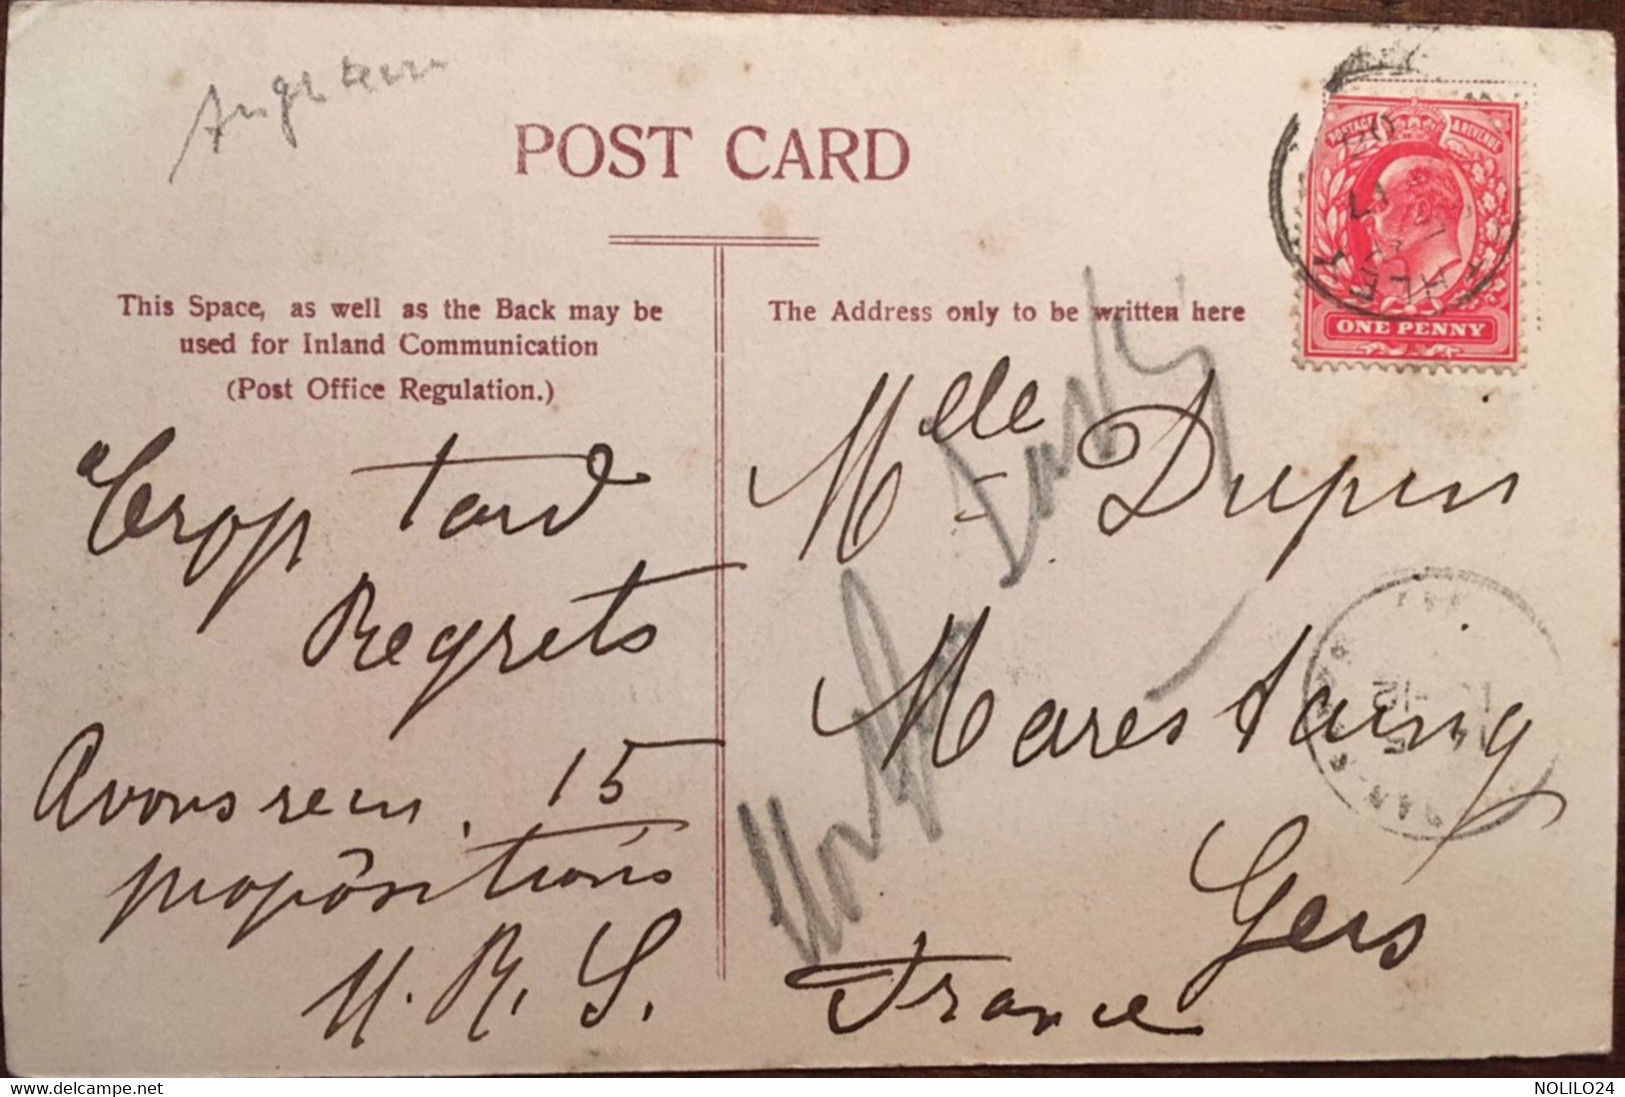 Angleterre
POST CARD
This Space, as well as the Back may be
used for Inland Communication
(Post Office Regulation.)
The Address only to be written here
POSTAGE & REVENUE
ONE PENNY
Trop tard
Regrets
Avons reçu 15
propositions
M. R. S.
Mlle Dupin
Marestaing
Gers
France
delcampe.net
NOLILO24